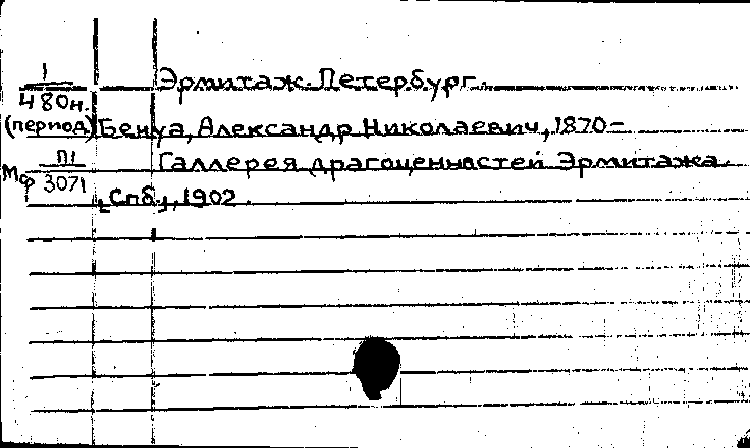 1 Эрмитаж. Петербург.
480н.
(период) Бенуа, Александр Николаевич, 1870-
П1 Галлерея драгоценностей Эрмитажа.
Мф 3071 [Спб], 1902.